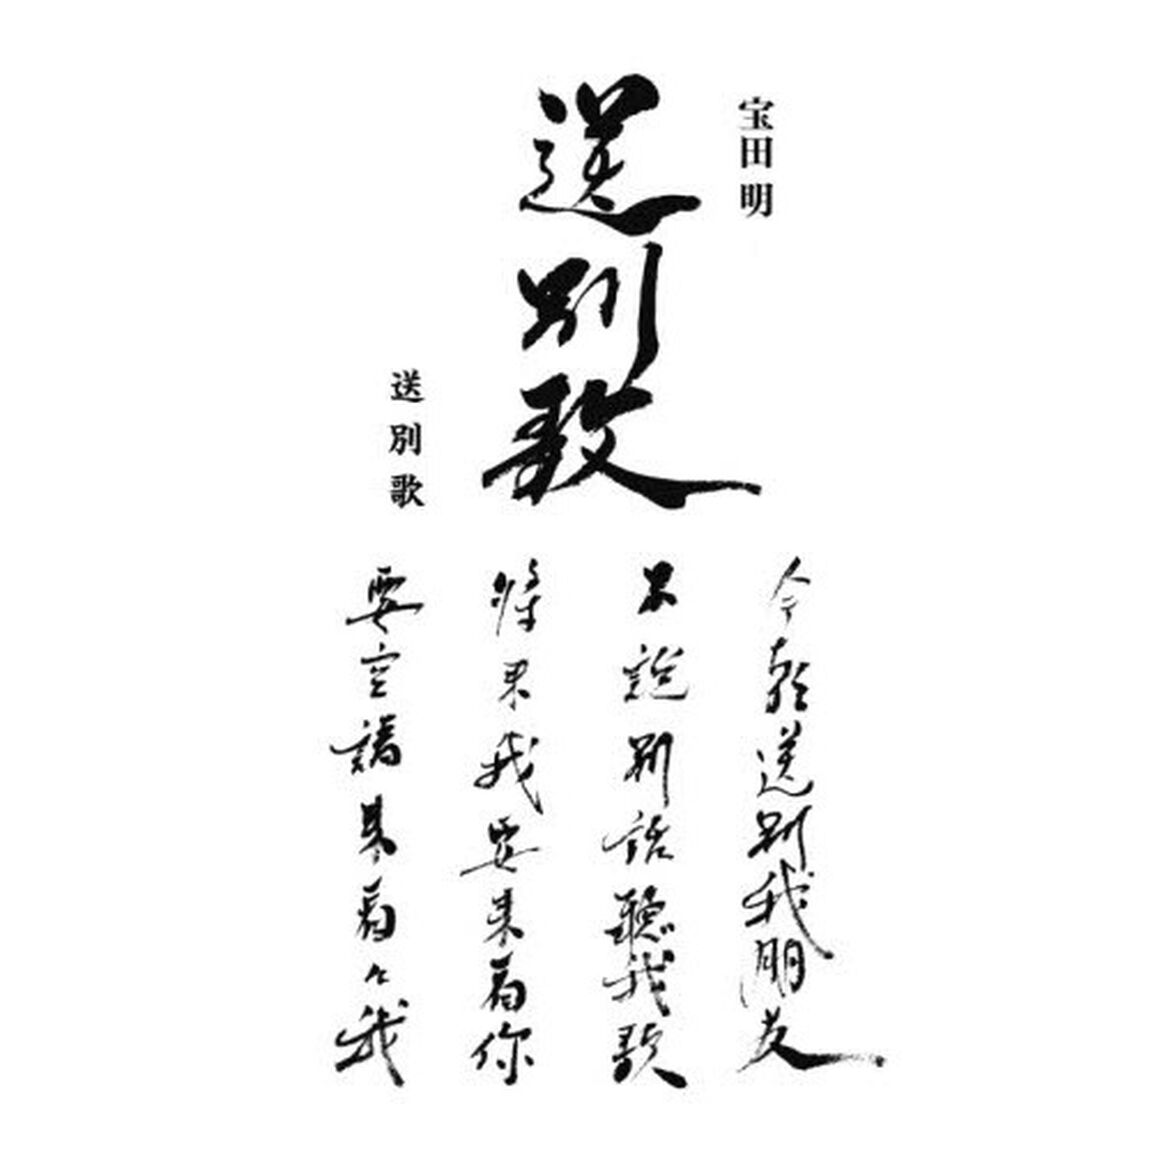 宝田明
送別歌
送別歌
今朝送別我朋友
不說別話聽我歌
將來我要來看你
要空請來看々我